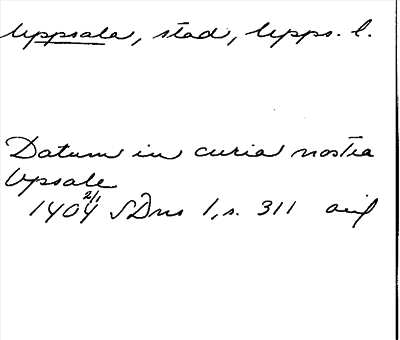 Uppsala, stad, Upps. l.
Datum in curia nostra
Upsale
1404 2/1 SDns 1, s. 311 avf